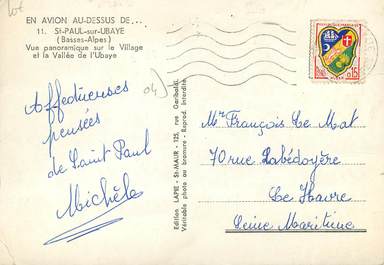 EN AVION AU-DESSUS DE...
11. St-PAUL-sur-UBAYE
(Basses-Alpes)
Vue panoramique sur le Village
et la Vallée de l'Ubaye
04)
Affectueuses
pensées
de Saint Paul
Michèle
Edition LAPIE - St-MAUR - 125, rue Garibaldi.
Véritable photo au bromure - Reprod. Interdite
0,15
Mr François Le Mat
70 rue Labédoyère
Le Havre
Seine Maritime